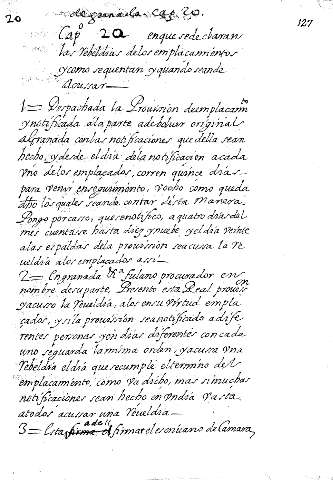 20
de granada. Cap. 20.
127
Capº 20 en que se declaran
las Rebeldias de los emplacamientos
y como se quentan y quando se an de
acussar
1 = Despachada la Provision de emplacamto
y notificada a la parte a de boluer original
a Granada con las notificaciones que della sean
hecho, y desde el dia de la notificacion a cada
vno de los emplaçados, corren quince dias
para venir en seguimiento, v ocho como queda
dho los quales se an de contar desta manera
Pongo por casso, que se notifico, a quatro dias del
mes cuentase hasta diez y nuebe y el dia veinte
a las espaldas de la provission se acussa la Re
veldia a los emplaçados assi
2 = En granada &ª fulano procurador en
nombre de su parte, Presento esta Real provission
y acusso la Reueldia, a los en su virtud empla
çados, y si la provission sea notificado a dife
rentes personas y en dias diferentes con cada
uno se guarda la misma orden, y acussa vna
Rebeldia el dia que se cumple el termino del
emplacamiento, como va dicho, mas si muchas
notificaciones sean hecho en vn dia vasta
a todos acussar una Reueldia
3 = Esta firmar el escriuano de Camara,